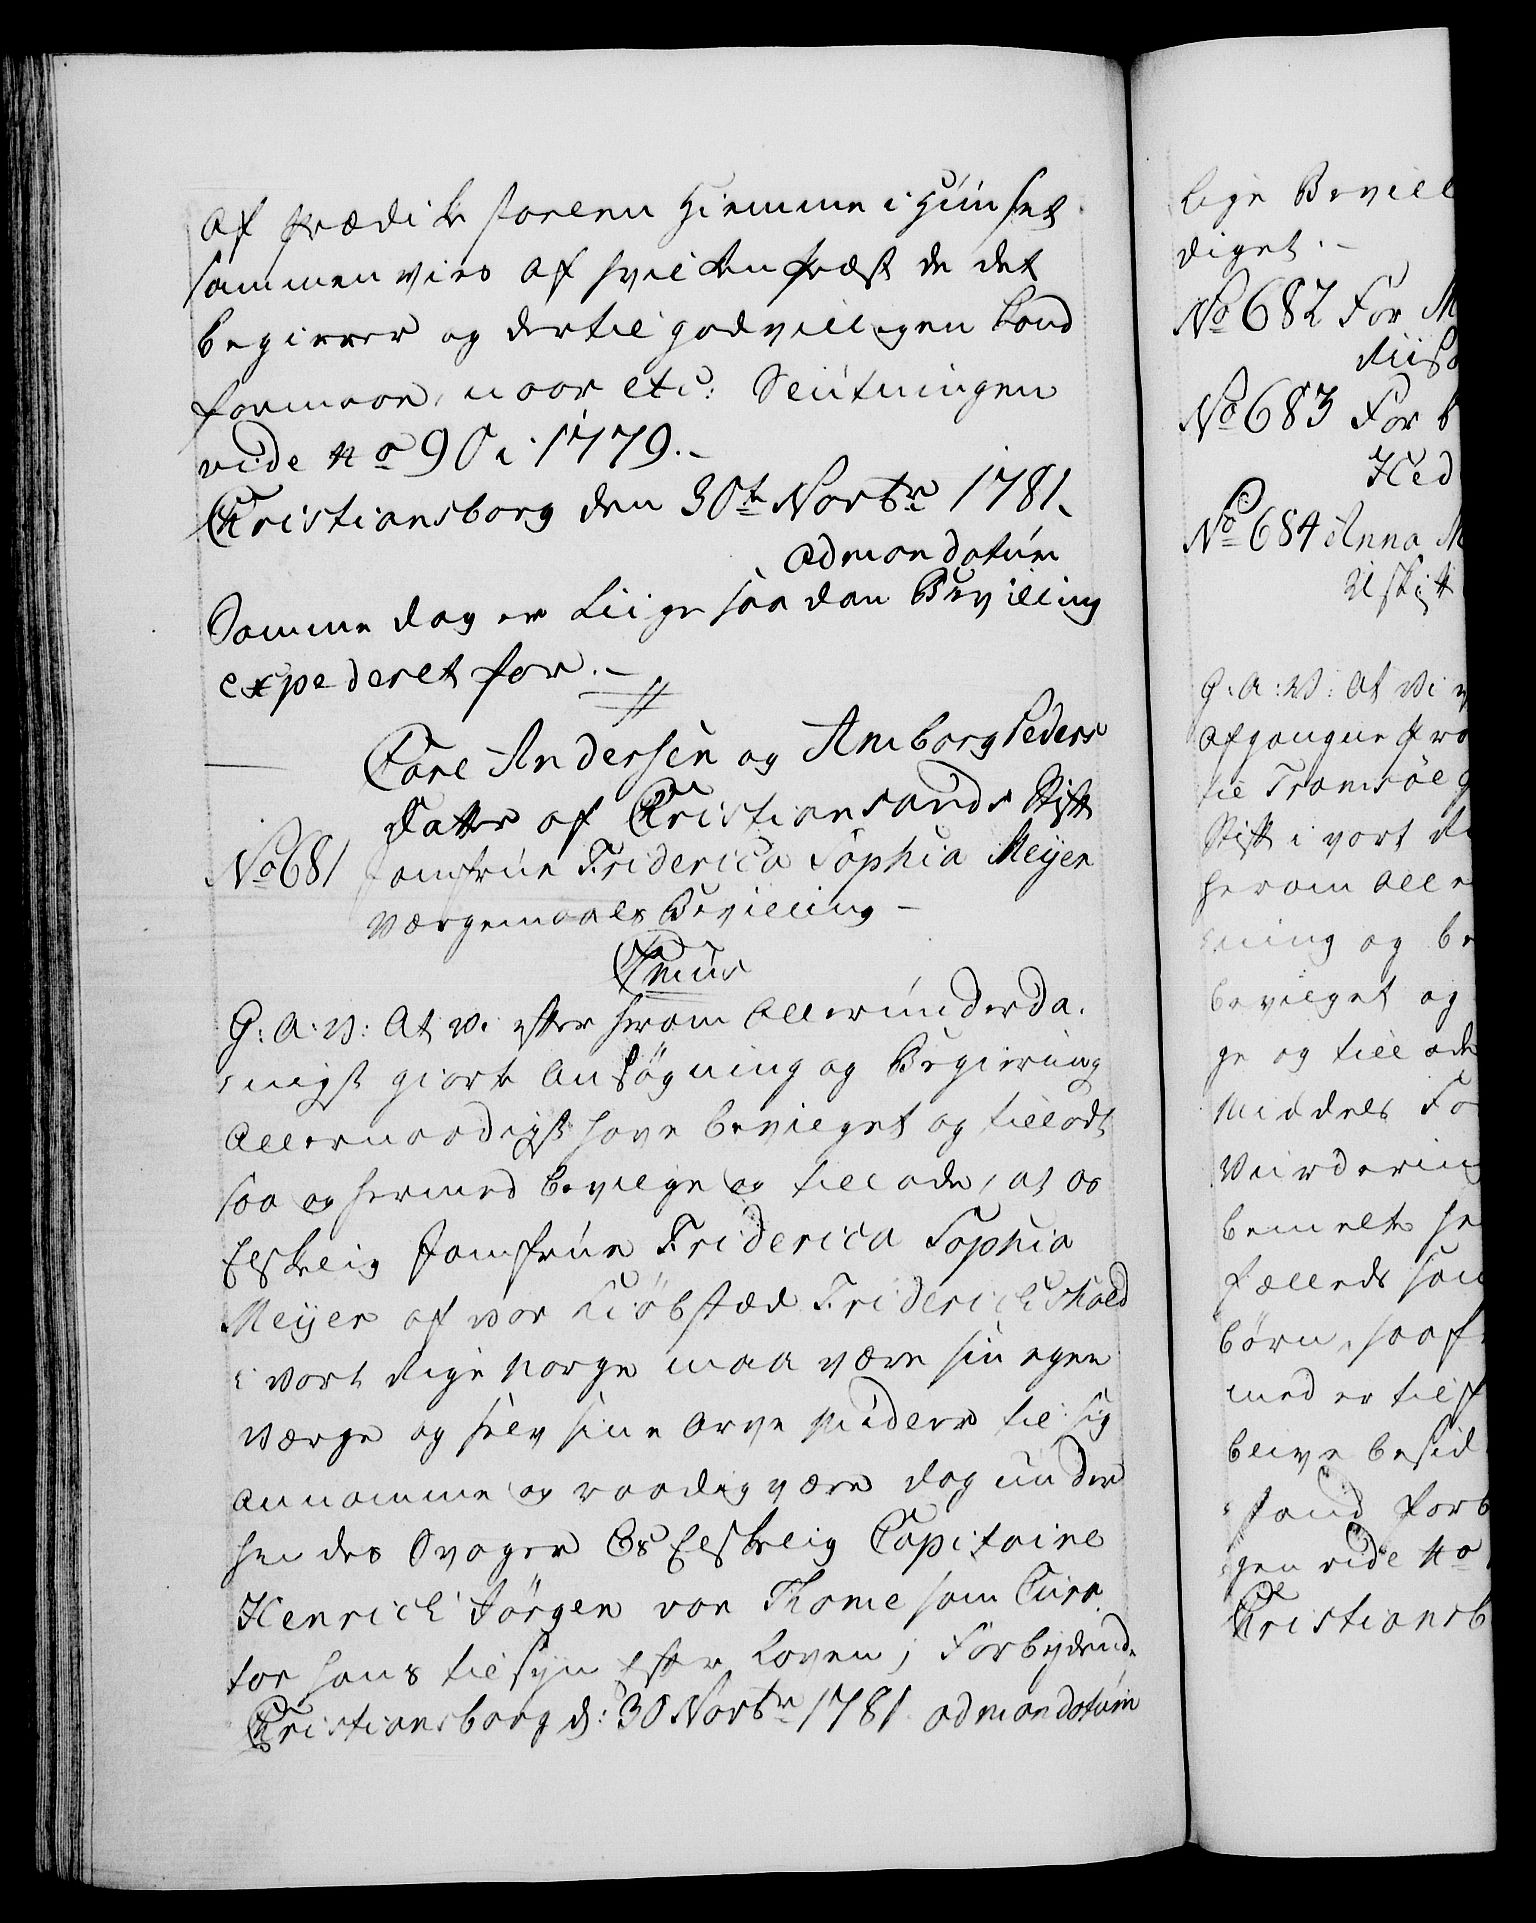 af Prædike stolen Hiemme i Huuset
sammenvies af hvilken Præst de det
begierer og dertil godvilligen kand
formaae, naar etc: Slutningen
vide no 90 i 1779.-
Christiansborg den 30te Novbr 1781.
ad mandatum
Samme dag er Liige saadan Bevilling
expederet for.-
Carl Andersen og Anborg Peders
Datter af Christiansands Stift
No 681 Jomfrue Friderica Sophia Meyer
Værgemaals Bevilling -
Cmus
G: A: V: At Vi efter herom allerunderda-
nigst giorte Ansøgning og Begiering
Allernaadigst have bevilget og tilladt
saa og hermed bevilge og tillade, at os
Elskelig Jomfrue Friderica Sophia
Meyer af vor Kiøbstæd Friderichshald
i vort Rige Norge maa være sin egen
Værge og selv sine Arve Midler til sig
annamme og raadig være dog under
hendes Svoger Os Elskelig Capitaine
Henrich Jörgen von Thome som Cura
tor hans tilsyn efter Loven; Forbydende
Christiansborg d: 30 Novbr 1781. ad mandatum
lige Bevill
diget.-
No 682 For M
No 683 For b
Hed
No 684 Anna M
G: A: V: At Vi
afgangne
til Tromsöe
Stift i vort
herom Aller
ning og be
bevilget og
ge og tillade
Middels Fo
Vurdering
bemelte
Fælleds
børn, saaf
med er tilf
blive besid
stand forb
gen vide No
Christiansb